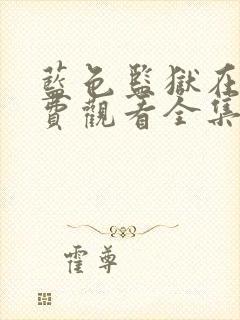 藍色監獄在
費觀看全集
霍尊